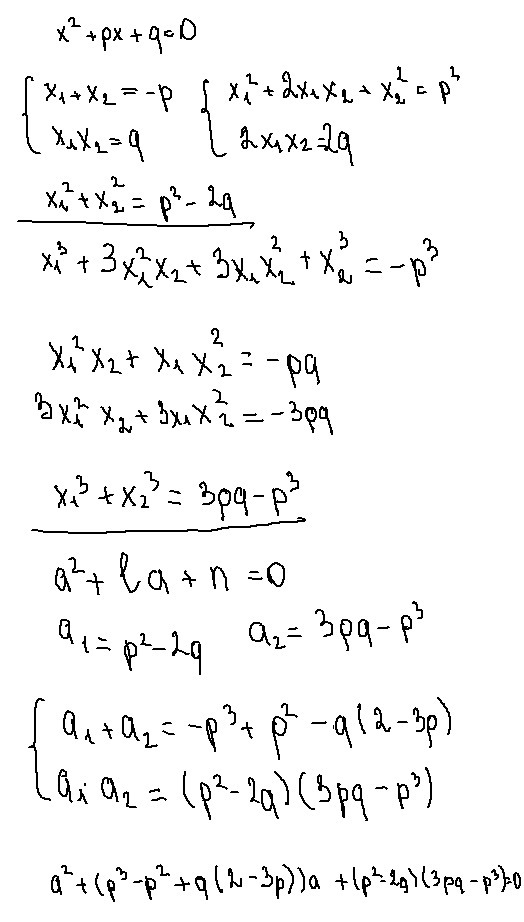 x² + px + q = 0
{ x₁ + x₂ = -p { x₁² + 2x₁x₂ + x₂² = p²
x₁x₂ = q 2x₁x₂ = 2q
x₁² + x₂² = p² - 2q
x₁³ + 3x₁²x₂ + 3x₁x₂² + x₂³ = -p³
x₁²x₂ + x₁x₂² = -pq
3x₁²x₂ + 3x₁x₂² = -3pq
x₁³ + x₂³ = 3pq - p³
a² + la + n = 0
a₁ = p² - 2q a₂ = 3pq - p³
{ a₁ + a₂ = -p³ + p² - q(2 - 3p)
a₁ a₂ = (p² - 2q)(3pq - p³)
a² + (p³ - p² + q(2 - 3p))a + (p² - 2q)(3pq - p³) = 0